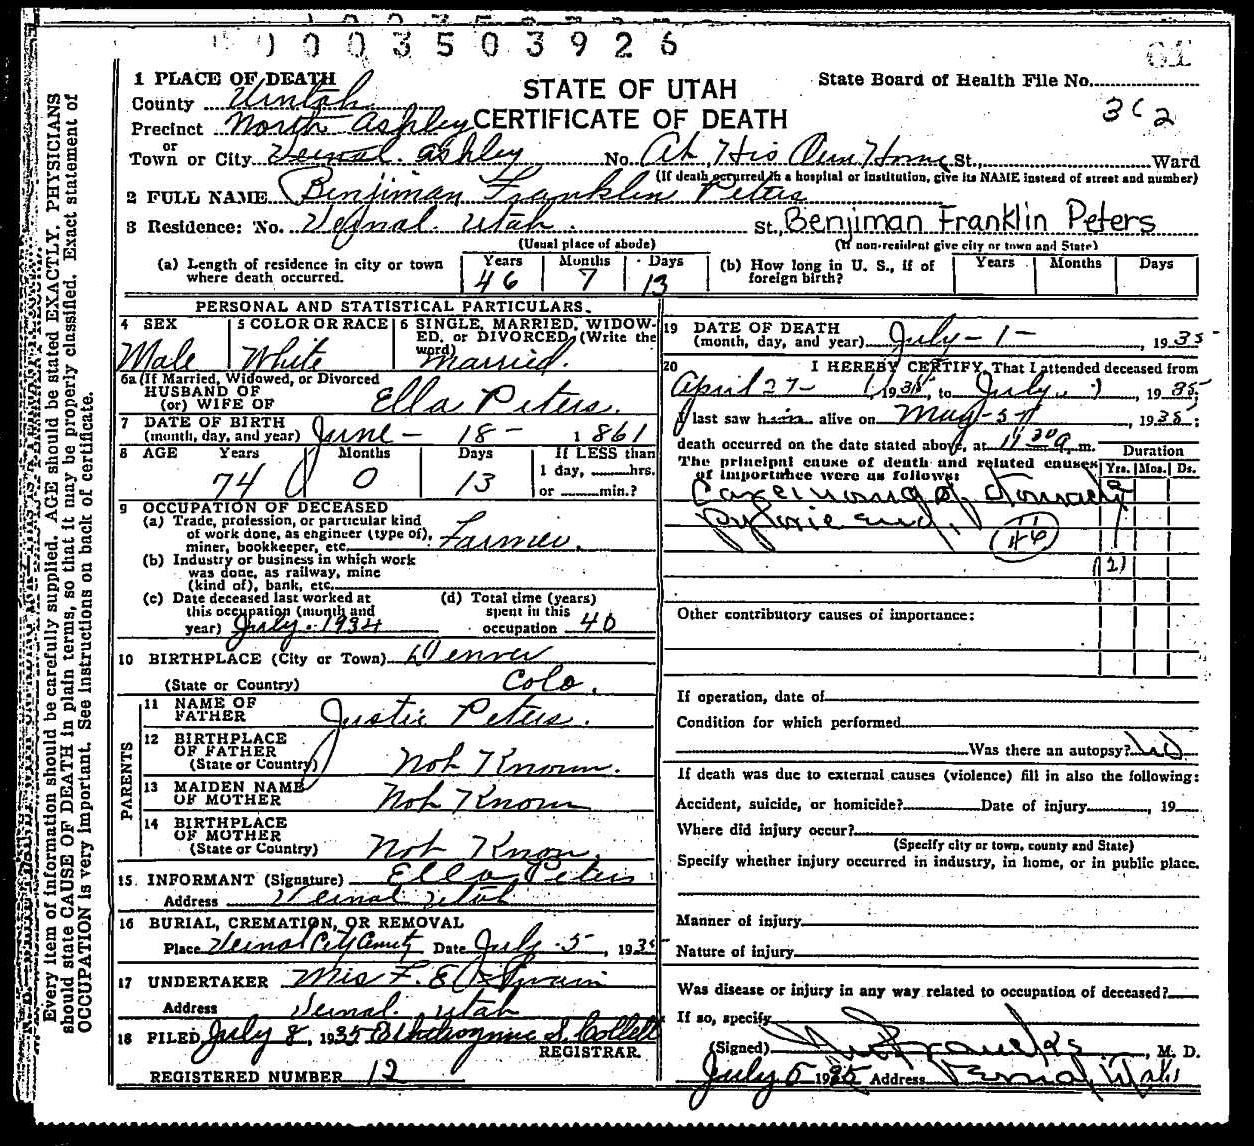 0 0 0 3 5 0 3 9 2 6
1 PLACE OF DEATH
County Uintah
Precinct North Ashley
or
Town or City Vernal. Ashley No. At His Own Home St., Ward
STATE OF UTAH
CERTIFICATE OF DEATH
State Board of Health File No.
362
(If death occurred in a hospital or institution, give its NAME instead of street and number)
2 FULL NAME Benjiman Franklin Peters
3 Residence: No. Vernal. Utah. St., Benjiman Franklin Peters
(Usual place of abode) (If non-resident give city or town and State)
(a) Length of residence in city or town where death occurred. Years 46 Months 7 Days 13
(b) How long in U. S., if of foreign birth? Years Months Days
PERSONAL AND STATISTICAL PARTICULARS.
4 SEX Male
5 COLOR OR RACE White
6 SINGLE, MARRIED, WIDOWED, or DIVORCED, (Write the word) Married.
6a (If Married, Widowed, or Divorced
HUSBAND OF
(or) WIFE OF Ella Peters.
7 DATE OF BIRTH
(month, day, and year) June - 18 - 1861
8 AGE Years 74 Months 0 Days 13
If LESS than
1 day, hrs.
or min.?
9 OCCUPATION OF DECEASED
(a) Trade, profession, or particular kind
of work done, as engineer (type of),
miner, bookkeeper, etc. Farmer.
(b) Industry or business in which work
was done, as railway, mine
(kind of), bank, etc.
(c) Date deceased last worked at
this occupation (month and
year) July. 1934
(d) Total time (years)
spent in this
occupation 40
10 BIRTHPLACE (City or Town) Denver
(State or Country) Colo.
PARENTS
11 NAME OF
FATHER Peters.
12 BIRTHPLACE
OF FATHER
(State or Country) Not Known.
13 MAIDEN NAME
OF MOTHER Not Known
14 BIRTHPLACE
OF MOTHER
(State or Country) Not Known.
15 INFORMANT (Signature) Ella Peters
Address Vernal Utah
16 BURIAL, CREMATION, OR REMOVAL
Place Vernal City Date July. 5, 1935
17 UNDERTAKER Mrs F. E. Swain
Address Vernal. Utah
18 FILED July 8, 1935 S. Collett
REGISTRAR.
REGISTERED NUMBER 12
19 DATE OF DEATH
(month, day, and year) July - 1 - , 1935
20 I HEREBY CERTIFY, That I attended deceased from
April 27 - 1935, to July 1, 1935
I last saw him alive on May - 5th, 1935;
death occurred on the date stated above, at 11 30 a. m.
The principal cause of death and related causes
of importance were as follows:
Duration
Yrs. Mos. Ds.
Carcinoma of stomach
pyloric end.
46
(2)
Other contributory causes of importance:
If operation, date of
Condition for which performed
Was there an autopsy? No
If death was due to external causes (violence) fill in also the following:
Accident, suicide, or homicide? Date of injury , 19
Where did injury occur?
(Specify city or town, county and State)
Specify whether injury occurred in industry, in home, or in public place.
Manner of injury
Nature of injury
Was disease or injury in any way related to occupation of deceased?
If so, specify
(Signed) , M. D.
July 5 1935 Address Vernal, Utah
Every item of information should be carefully supplied. AGE should be stated EXACTLY. PHYSICIANS
should state CAUSE OF DEATH in plain terms, so that it may be properly classified. Exact statement of
OCCUPATION is very important. See instructions on back of certificate.